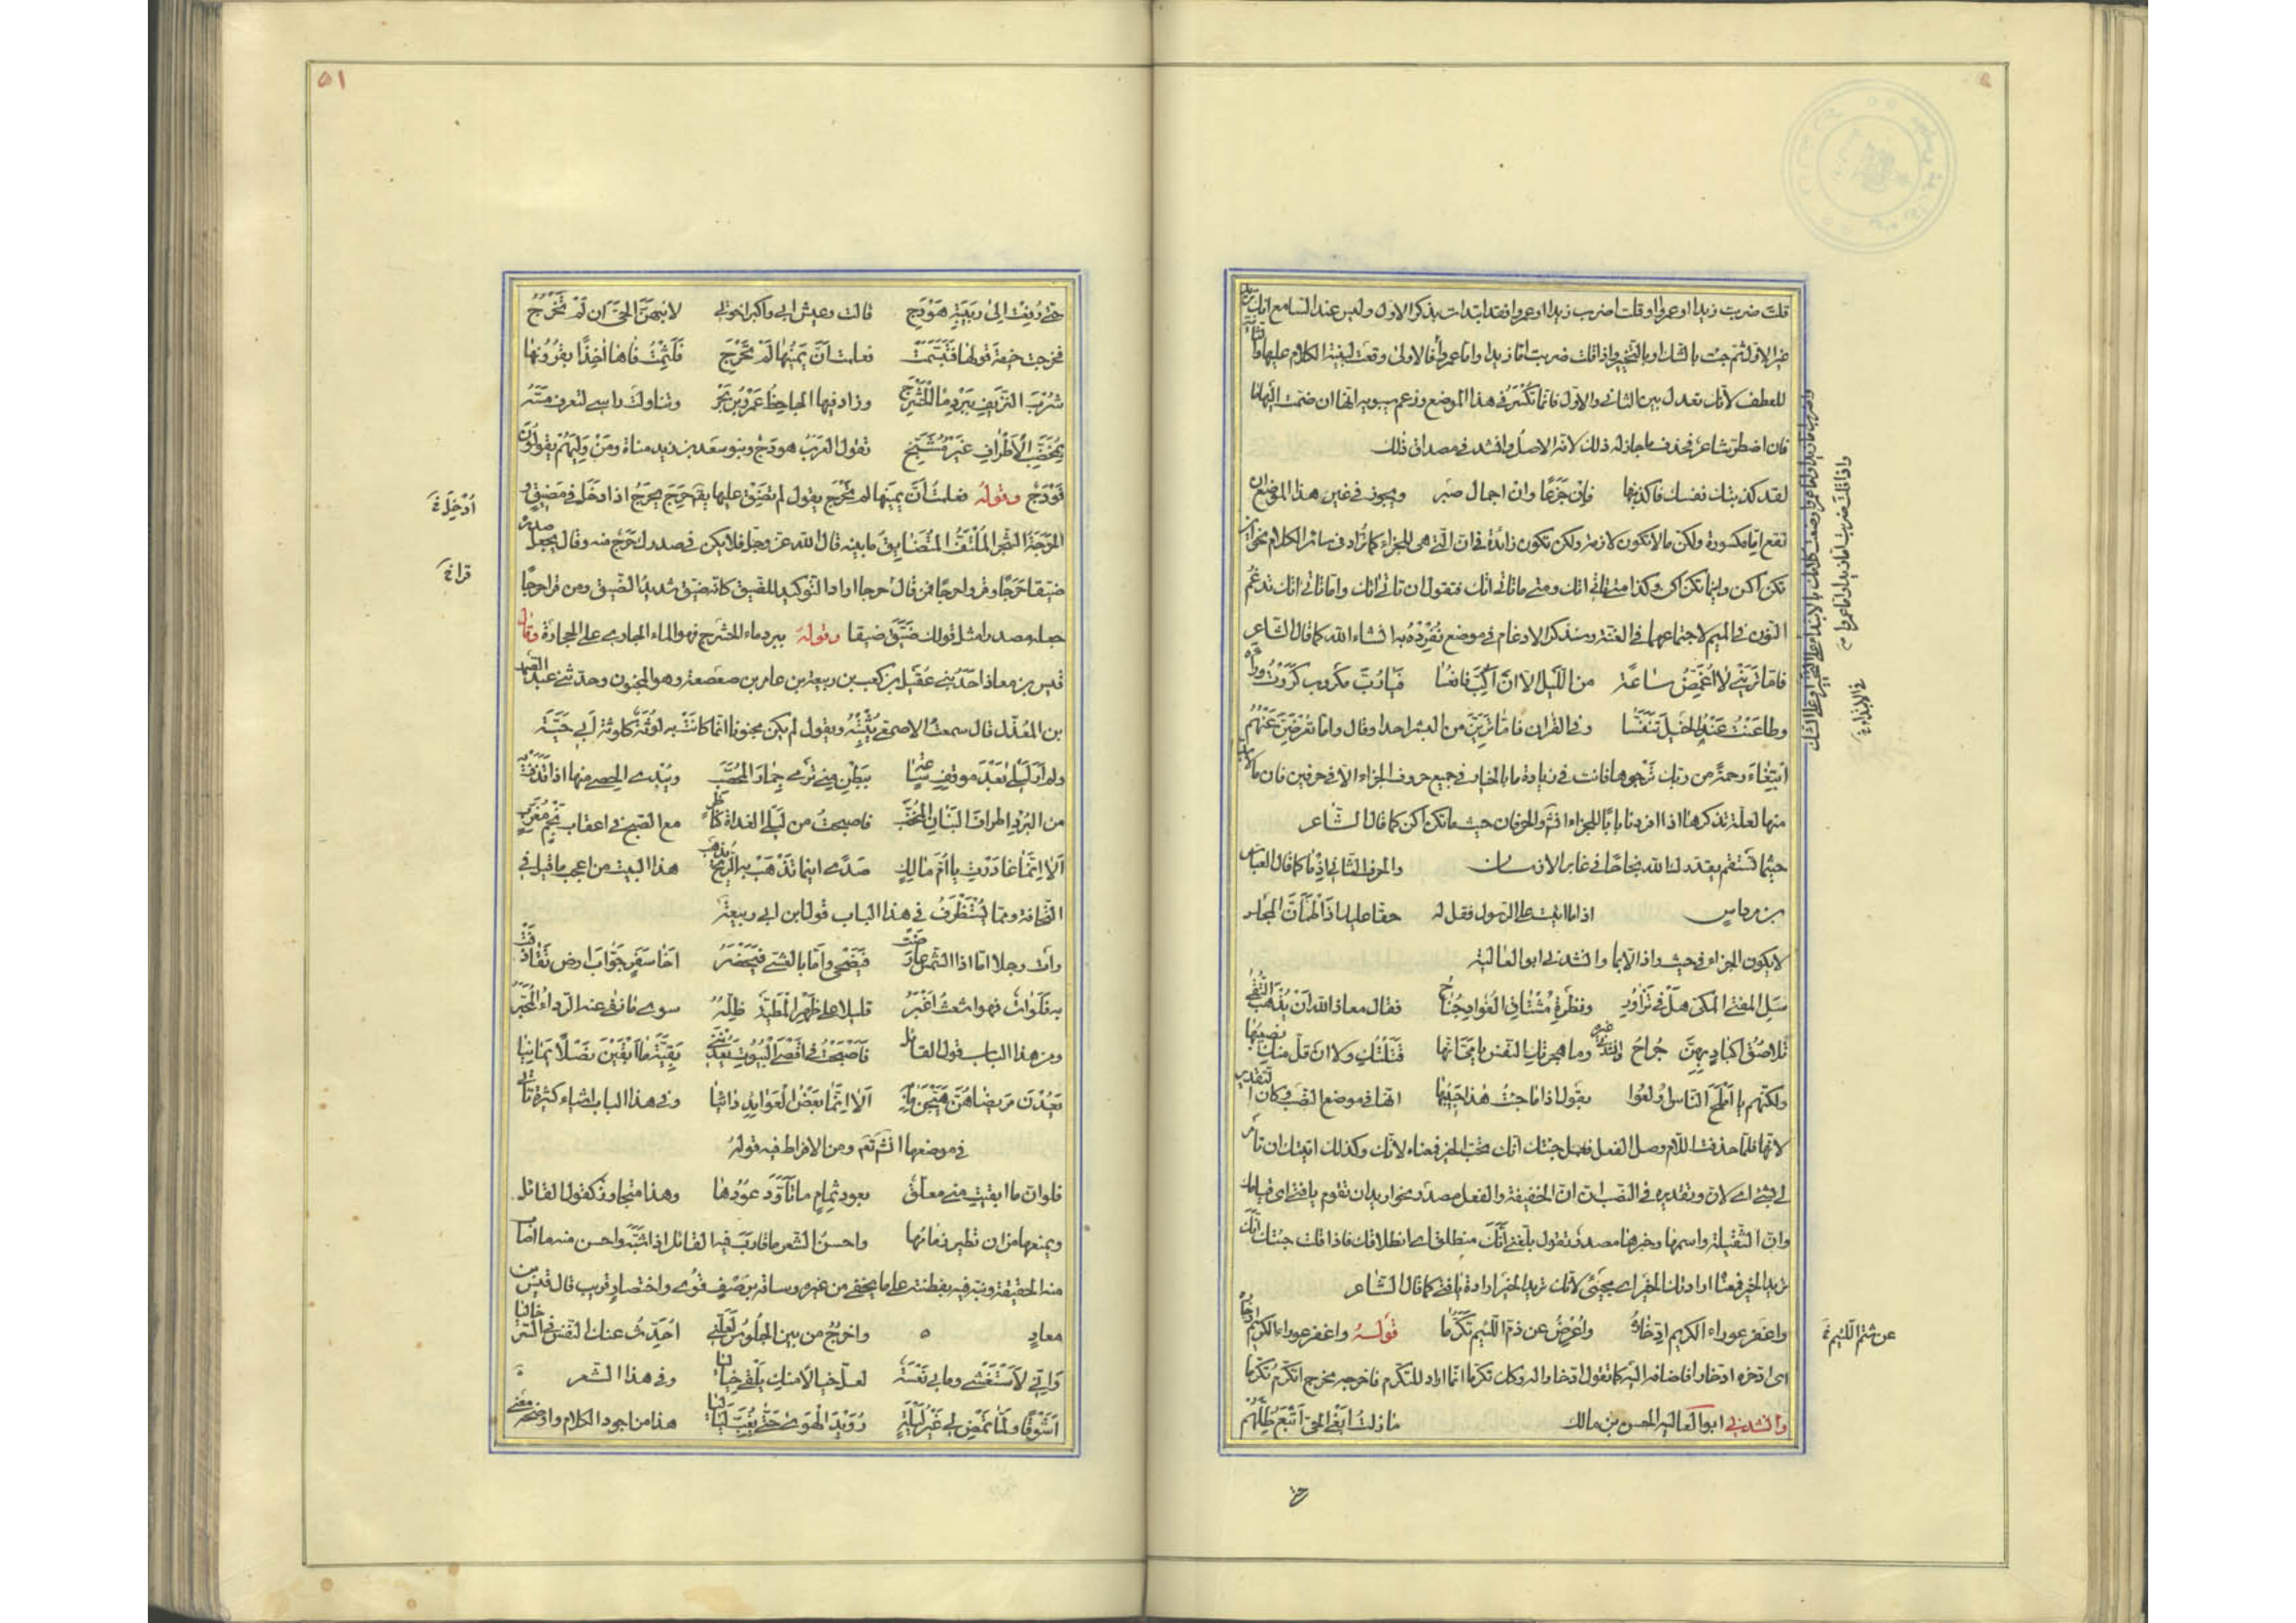 قلت ضربت زيدا او عمروا او قلت اضرب زيدا او عمروا فقد ابتدات بذكر الاول وليس عند السامع انك تريد
غير الاول ثم جئت بالشك او بالتخيير واذا قلت ضربت اما زيدا واما عمروا فالاولى وقعت لبنية الكلام عليها والثانية
للعطف لانك تعدل بين الثانى والاول فانما تكسر فى هذا الموضع وزعم سيبويه انها ان ضمت اليها ما
فان اضطر شاعر فحذف ما جاز له ذلك لانه الاصل وانشد فى مصداق ذلك
لقد كذبتك نفسك فاكذبنها فان جزعا وان اجمال صبر ويجوز فى غير هذا الموضع ان
تقع اما مكسورة ولكن ما لا تكون لازمة ولكن تكون زائدة فى ان التى هى للجزاء كما تزاد فى سائر الكلام نحو اين
تكن اكن واينما تكن اكن وكذا متى تاتنى اتك ومتى ما تاتنى اتك فتقول ان تاتنى اتك واما تاتنى اتك تدغم
النون فى الميم لاجتماعهما فى الغنة وسنذكر الادغام فى موضع نفرده به انشاء الله كما قال الشاعر
فاما ترينى لا اغمض ساعة من الليل الا ان اكب فانعسا فيا رب مكروب كررت وراءه
وطاعنت عنه الخيل حتى تنفسا وفى القران فاما ترين من البشر احدا وقال واما تعرضن عنهم
ابتغاء رحمة من ربك ترجوها فانت فى زيادة ما بالخيار فى جميع حروف الجزاء الا فى حرفين فان ما لابد
منها لعلة نذكرها اذا افردنا بابا للجزاء انشم والحرفان حيث ما تكن اكن كما قال الشاعر
حيثما تستقم يقدر لك الله نجاحا فى غابر الازمان والحرف الثانى اذ ما كما قال العباس
بن مرداس اذ ما اتيت على الرسول فقل له حقا عليك اذا اطمأن المجلس
لا يكون الجزاء فى حيث واذ الا بما وانشدنى ابو العالية
سل المفتى المكى هل فى تزاور ونظرة مشتاق الفؤاد جناح فقال معاذ الله ان يذهب التقى
تلاصق اكباد بهن جراح وانشد غيره وما هجرتك النفس يا مى انها قلتك ولا ان قل منك نصيبها
ولكنهم يا املح الناس اولعوا بقول اذا ما جئت هذا حبيبها انها فى موضع النصب وكان التقدير
لانها فلما حذفت اللام وصل الفعل فعمل جئتك انك تحب الخير فمعناه لانك وكذلك اتيتك ان تامر
لى بشئ اى لان وتقديره فى النصب ان ان الخفيفة والفعل مصدر نحو اريد ان تقوم يا فتى اى قيامك
وان الثقيلة واسمها وخبرها مصدر تقول بلغنى انك منطلق اى انطلاقك فاذا قلت جئتك انك
تريد الخير فمعناه ارادتك الخير اى مجيئى لانك تريد الخير ارادة يا فتى كما قال الشاعر
واغفر عوراء الكريم ادخاره واعرض عن ذم اللئيم تكرما قوله واغفر عوراء الكريم ادخاره
اى ادخره ادخارا فاضافه اليه كما تقول ادخارا له وكان تكرما انما اراد للتكرم فاخرجه مخرج اتكرم تكرما
وانشدنى ابو العالية الحسن بن مالك ما زلت ابغى الحى اتبع ظلهم
واذا قلت ضربت اما زيدا واما عمروا
فى الابتداء
عن شتم اللئيم
حتى
٥١
حتى دفعت الى ربيبة هودج قالت وعيش ابى واكبر اخوتى لانبهن الحى ان لم تخرج
فخرجت خيفة قولها فتبسمت فعلمت ان يمينها لم تحرج فلثمت فاها اخذا بقرونها
شرب النزيف ببرد ماء الحشرج وزاد فيها الجاحظ عمرو بن بحر وتناولت راسى لتعرف مسه
بمخضب الاطراف غير مشنج تقول العرب هودج وبنو سعد بن زيد مناة ومن وليهم يقولون
فودج وقوله فعلمت ان يمينها لم تحرج يقول لم تضيق عليها يقال حرج يحرج اذا دخل فى مضيق و
الحرجة الشجر الملتف المتضايق ما بينه قال الله عز وجل فلا يكن فى صدرك حرج منه وقال يجعل صدره
ضيقا حرجا وقرء وا حرجا فمن قال حرجا اراد التوكيد للضيق كانه ضيق شديد الضيق ومن قرا حرجا
جعله مصدرا مثل قولك ضيق ضيقا وقوله ببرد ماء الحشرج فهو الماء الجارى على الحجارة وقال
قيس بن معاذ احد بنى عقيل بن كعب بن ربيعة بن عامر بن صعصعة وهو المجنون وحدثنى عبد الصمد
بن المعذل قال سمعت الاصمعى يثبته ويقول لم يكن مجنونا انما كانت به لوثة كلوثة ابى حية
ولم ار ليلى بعد موقف ساعة ببطن منى ترمى جمار المحصب ويبدى الحصى منها اذا قذفت به
من البرد اطراف البنان المخضب فاصبحت من ليلى الغداة كناظر مع الصبح فى اعقاب نجم مغرب
الا انما غادرت يا ام مالك صدى اينما تذهب به الريح يذهب هذا البيت من اعجب ما قيل فى
النحافة ومما يستظرف فى هذا الباب قول ابن ابى ربيعة
رات رجلا اما اذا الشمس عارضت فيضحى واما بالعشى فيخصر اخا سفر جواب ارض تقاذفت
به فلوات فهو اشعث اغبر قليلا على ظهر المطية ظله سوى ما نفى عنه الرداء المحبر
ومن هذا الباب قول القائل فاصبحت فى اقصى البيوت يعدننى بقية ما ابقين نصلا يمانيا
يعدن مريضا هن هيجن ما به الا انما بعض العوائد دائيا وفى هذا الباب اشياء كثيرة تاتى
فى موضعها انشم تع ومن الافراط فيه قوله
فلو ان ما ابقيت منى معلق بعود ثمام ما تاود عودها وهذا متجاوز كقول القائل
ويمنعها من ان تطير زمامها واحسن الشعر ما قارب فيه القائل اذا شبه واحسن منه ما اصاب
منه الحقيقة ونبه فيه بفطنته على ما يخفى من غيره وساقه برصف قوى واختصار قريب قال قيس بن
معاذ واخرج من بين الجلوس لعلنى احدث عنك النفس فى السر خاليا
وانى لاستغشى وما بى نعسة لعل خيالا منك يلقى خياليا وفى هذا الشعر
اشوقا ولما تمض لى غير ليلة رويد الهوى حتى يغب لياليا هذا من اجود الكلام واوضحه معنى
ادخل
قرا